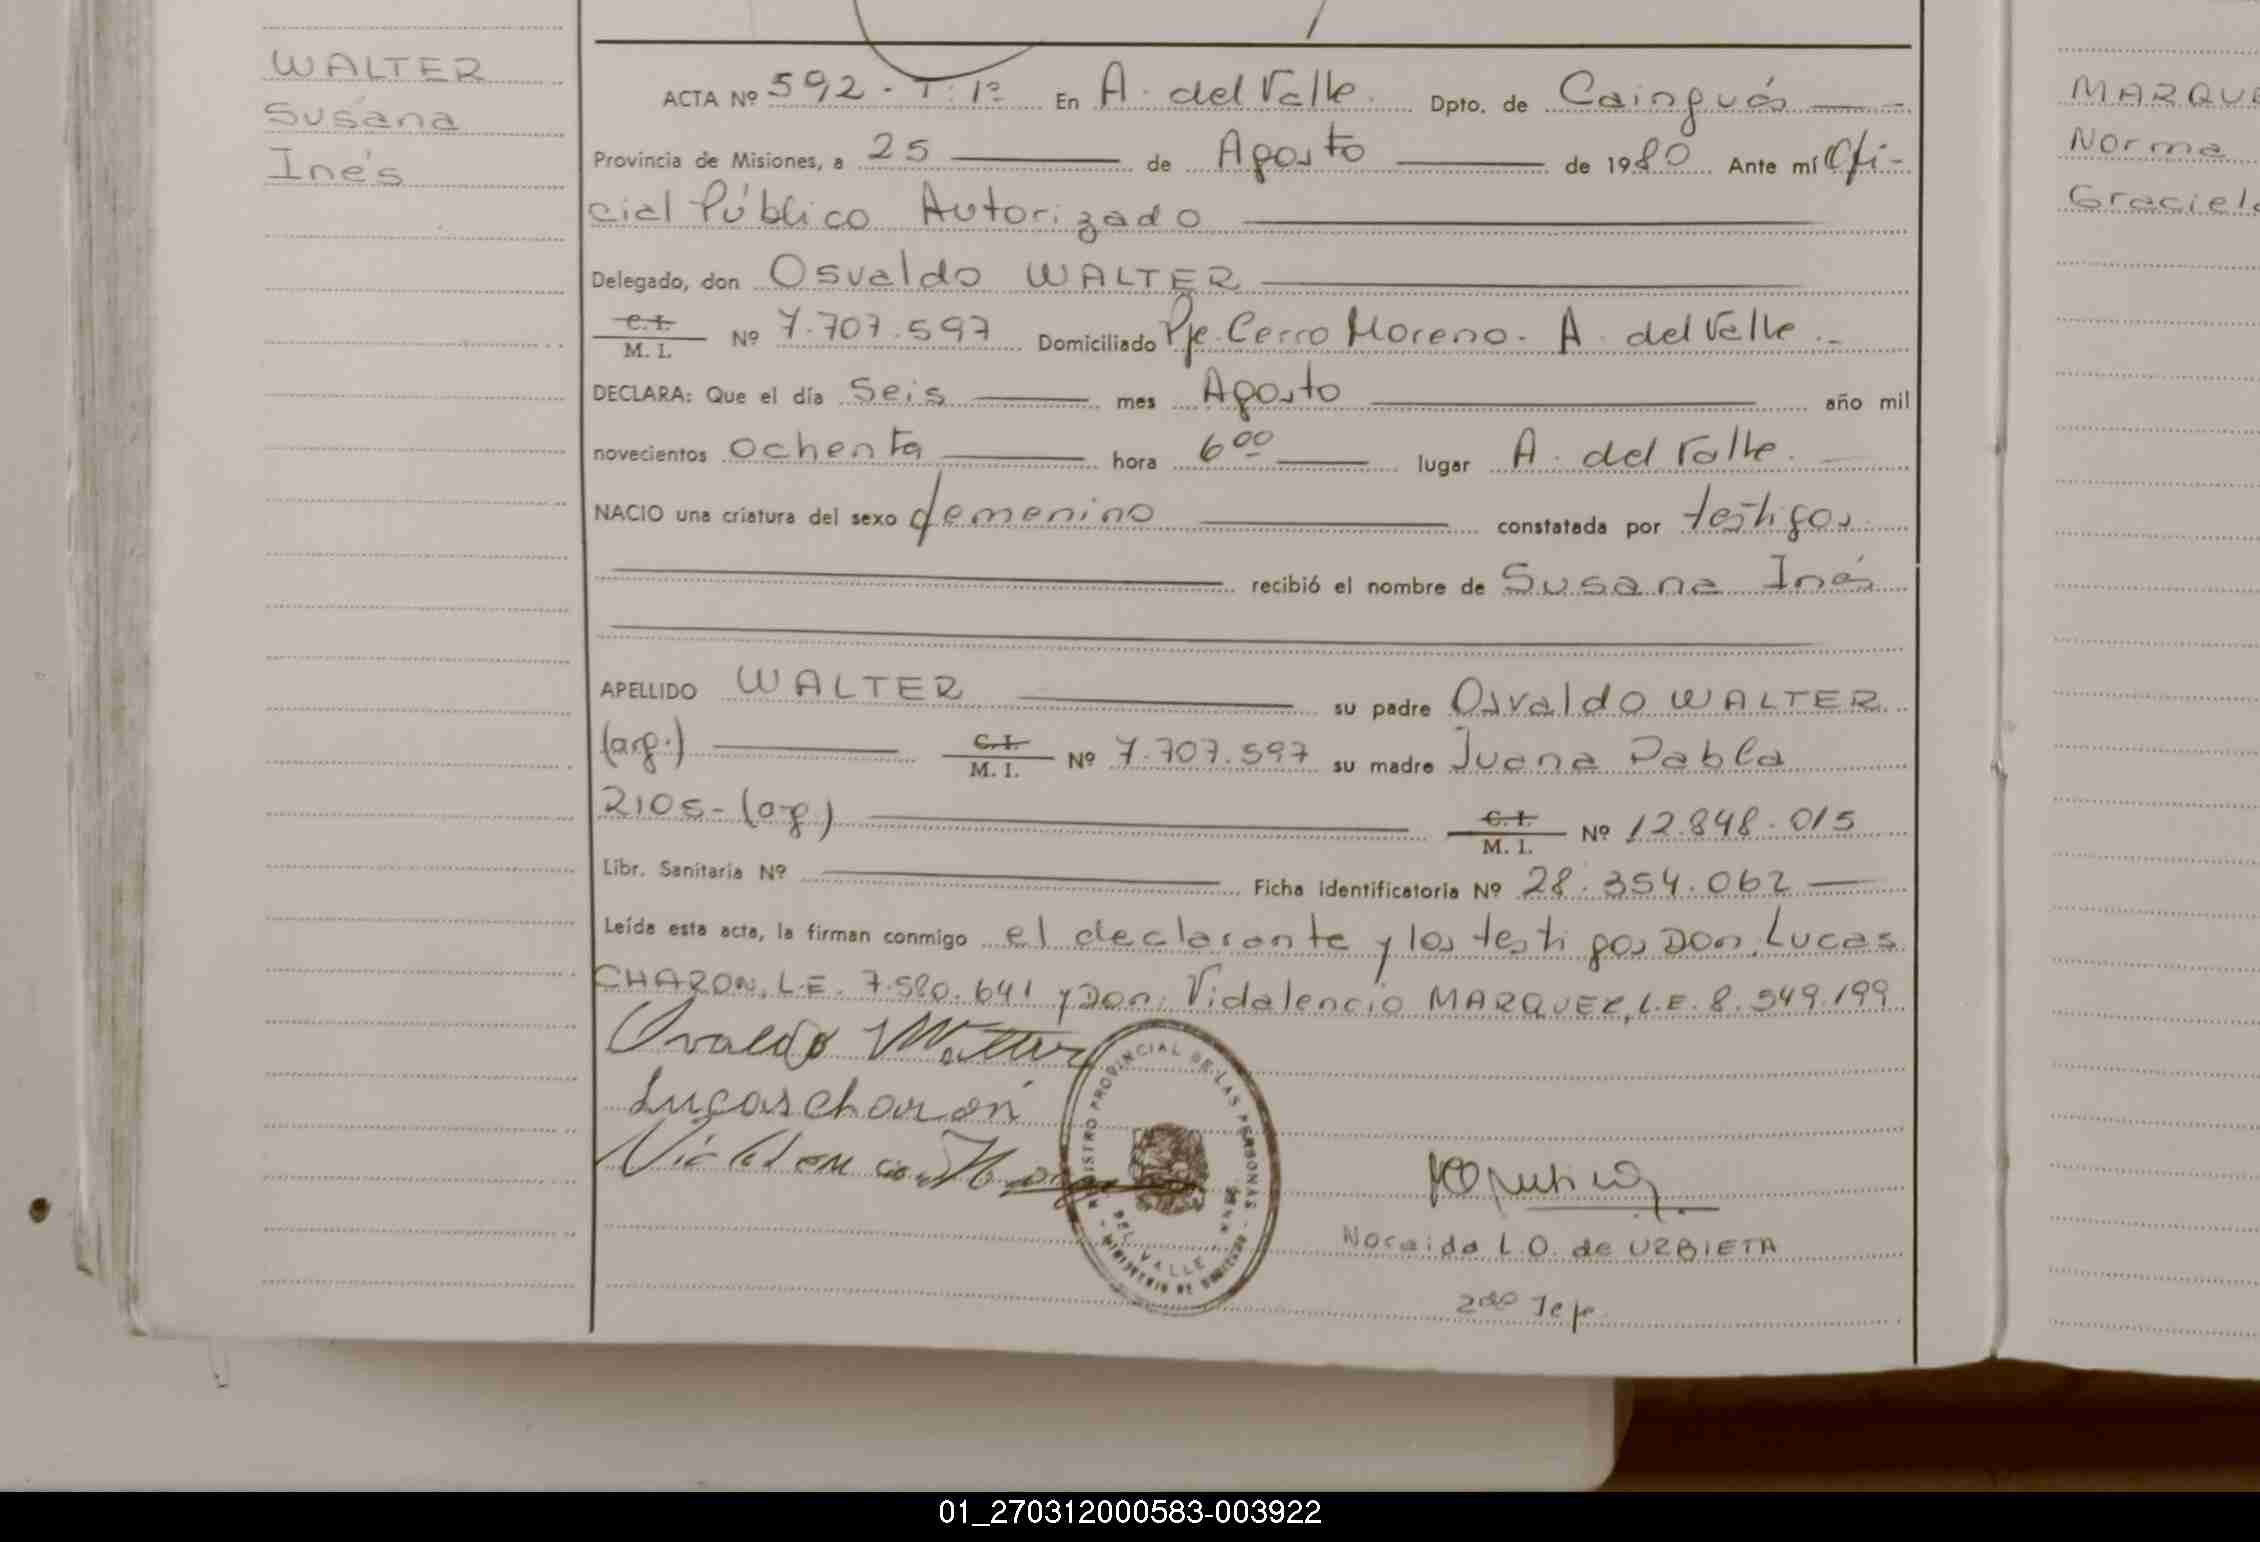 WALTER
Susana
Inés
ACTA Nº 592 - T: 1º En A. del Valle. Dpto. de Cainguás
Provincia de Misiones, a 25 de Agosto de 1980 Ante mí Ofi-
cial Público Autorizado
Delegado, don Osvaldo WALTER
C. I.
M. I. Nº 7.707.597 Domiciliado Pje. Cerro Moreno - A. del Valle.-
DECLARA: Que el día Seis mes Agosto año mil
novecientos ochenta hora 6 00 lugar A. del Valle.
NACIO una criatura del sexo femenino constatada por testigos
recibió el nombre de Susana Inés
APELLIDO WALTER su padre Osvaldo WALTER
(arg.) C. I.
M. I. Nº 7.707.597 su madre Juana Pabla
RIOS - (arg) C. I.
M. I. Nº 12.848.015
Libr. Sanitaria Nº Ficha identificatoria Nº 28.354.062
Leída esta acta, la firman conmigo el declarante y los testigos Don. Lucas
CHARON, L.E. 7.580.641 y Don. Vidalencio MARQUEZ, L.E. 8.549.199
Osvaldo Walter
Lucas charón
REGISTRO PROVINCIAL DE LAS PERSONAS
DEL VALLE
MINISTERIO DE GOBIERNO
Noraida L.O. de URBIETA
2do Jefe
MARQUE
Norma
Graciel
01_270312000583-003922